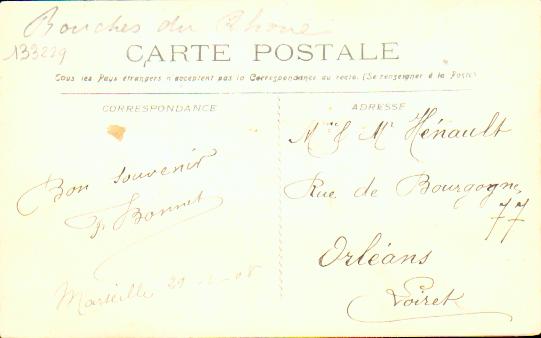 Bouches du Rhone
133229
CARTE POSTALE
Tous les Pays étrangers n'acceptent pas la Correspondance au recto. (Se renseigner à la Poste)
CORRESPONDANCE
Bon souvenir
Bonnet
Marseille
ADRESSE
Mme & Mr Hénault
Rue de Bourgogne,
77
Orléans
Loiret